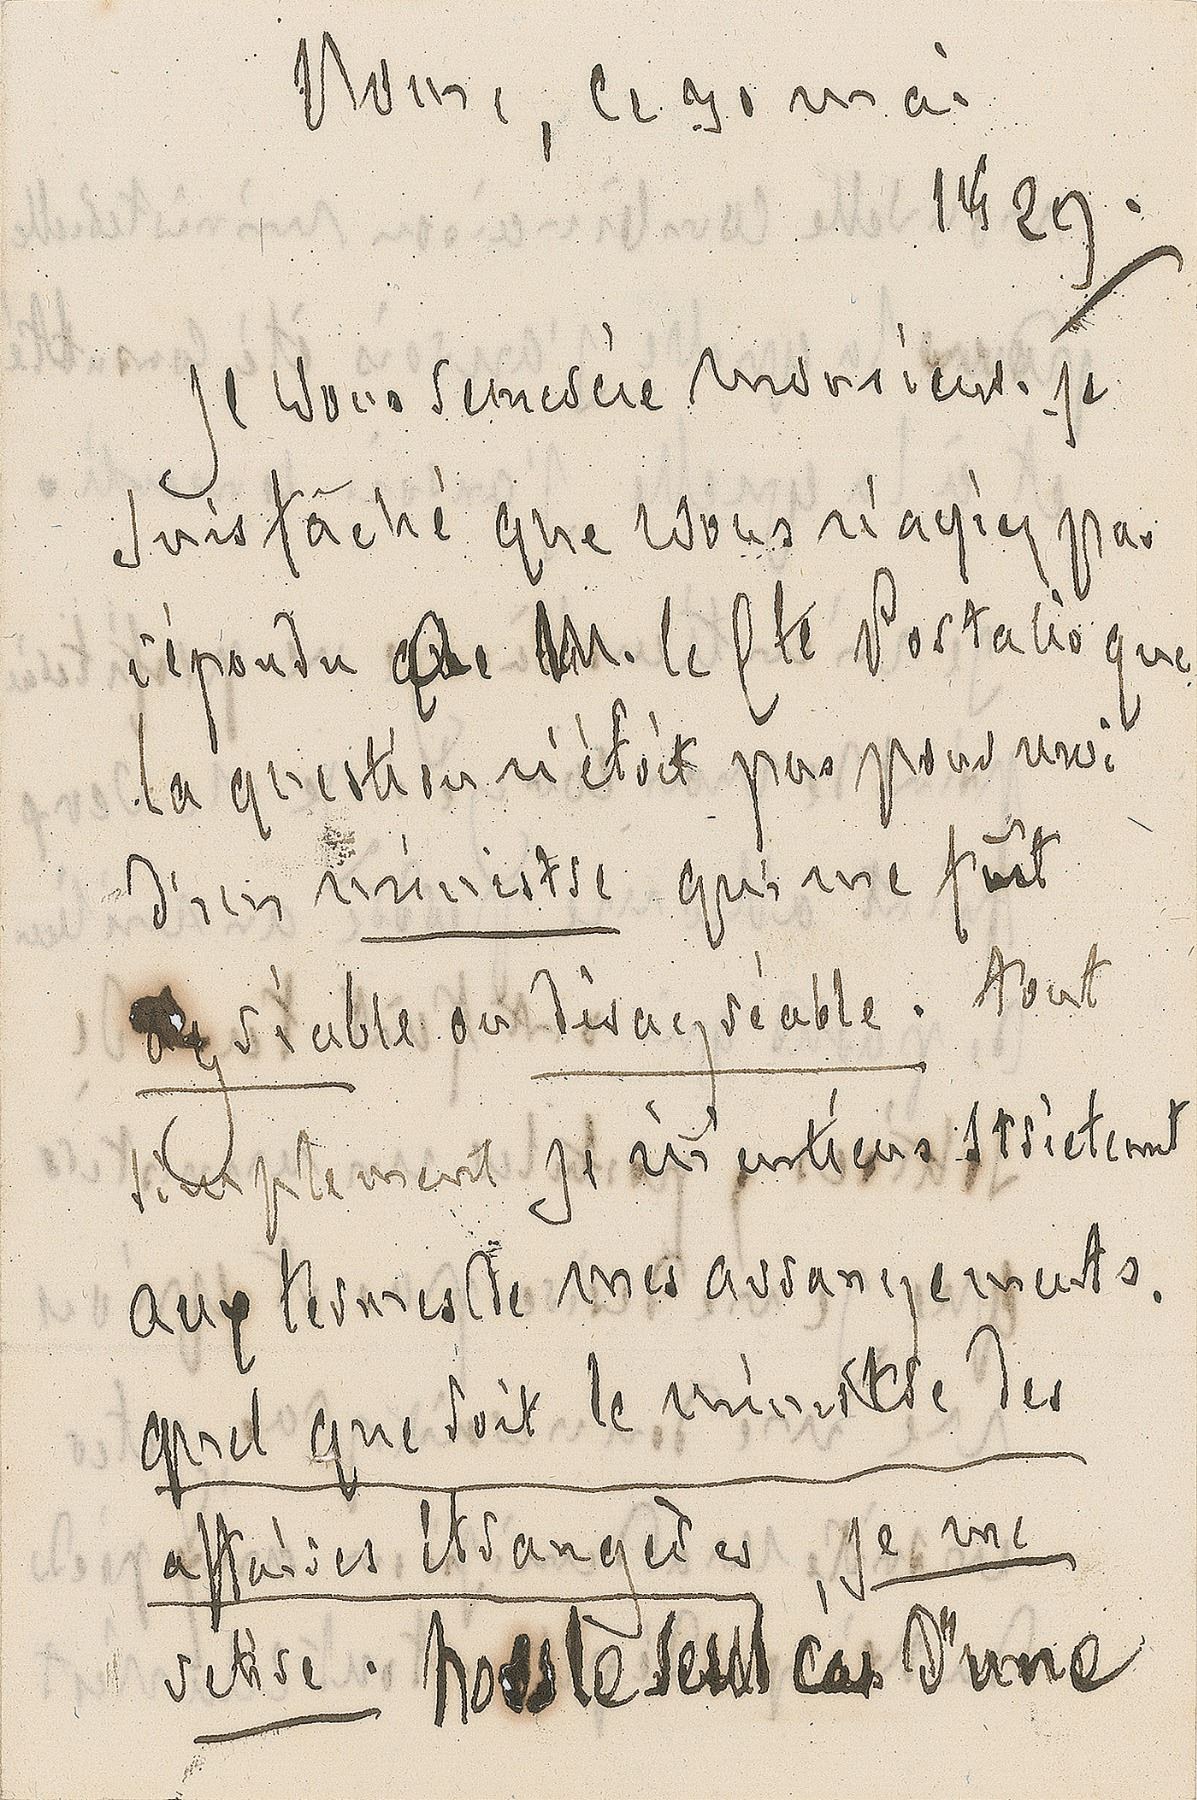 Rome, ce 30 mai
1829.
je vous remercie monsieur. je
suis fâché que vous n'ayiez pas
répondu que M. le Cte Portalis que
la question n'étoit pas pour moi
d'un ministre qui me fût
agréable ou désagréable. tout
simplement je m'en tiens strictemt
aux termes de mes arrangements.
quel que soit le ministre des
affaires étrangères, je me
retire. hors le seul cas d'une